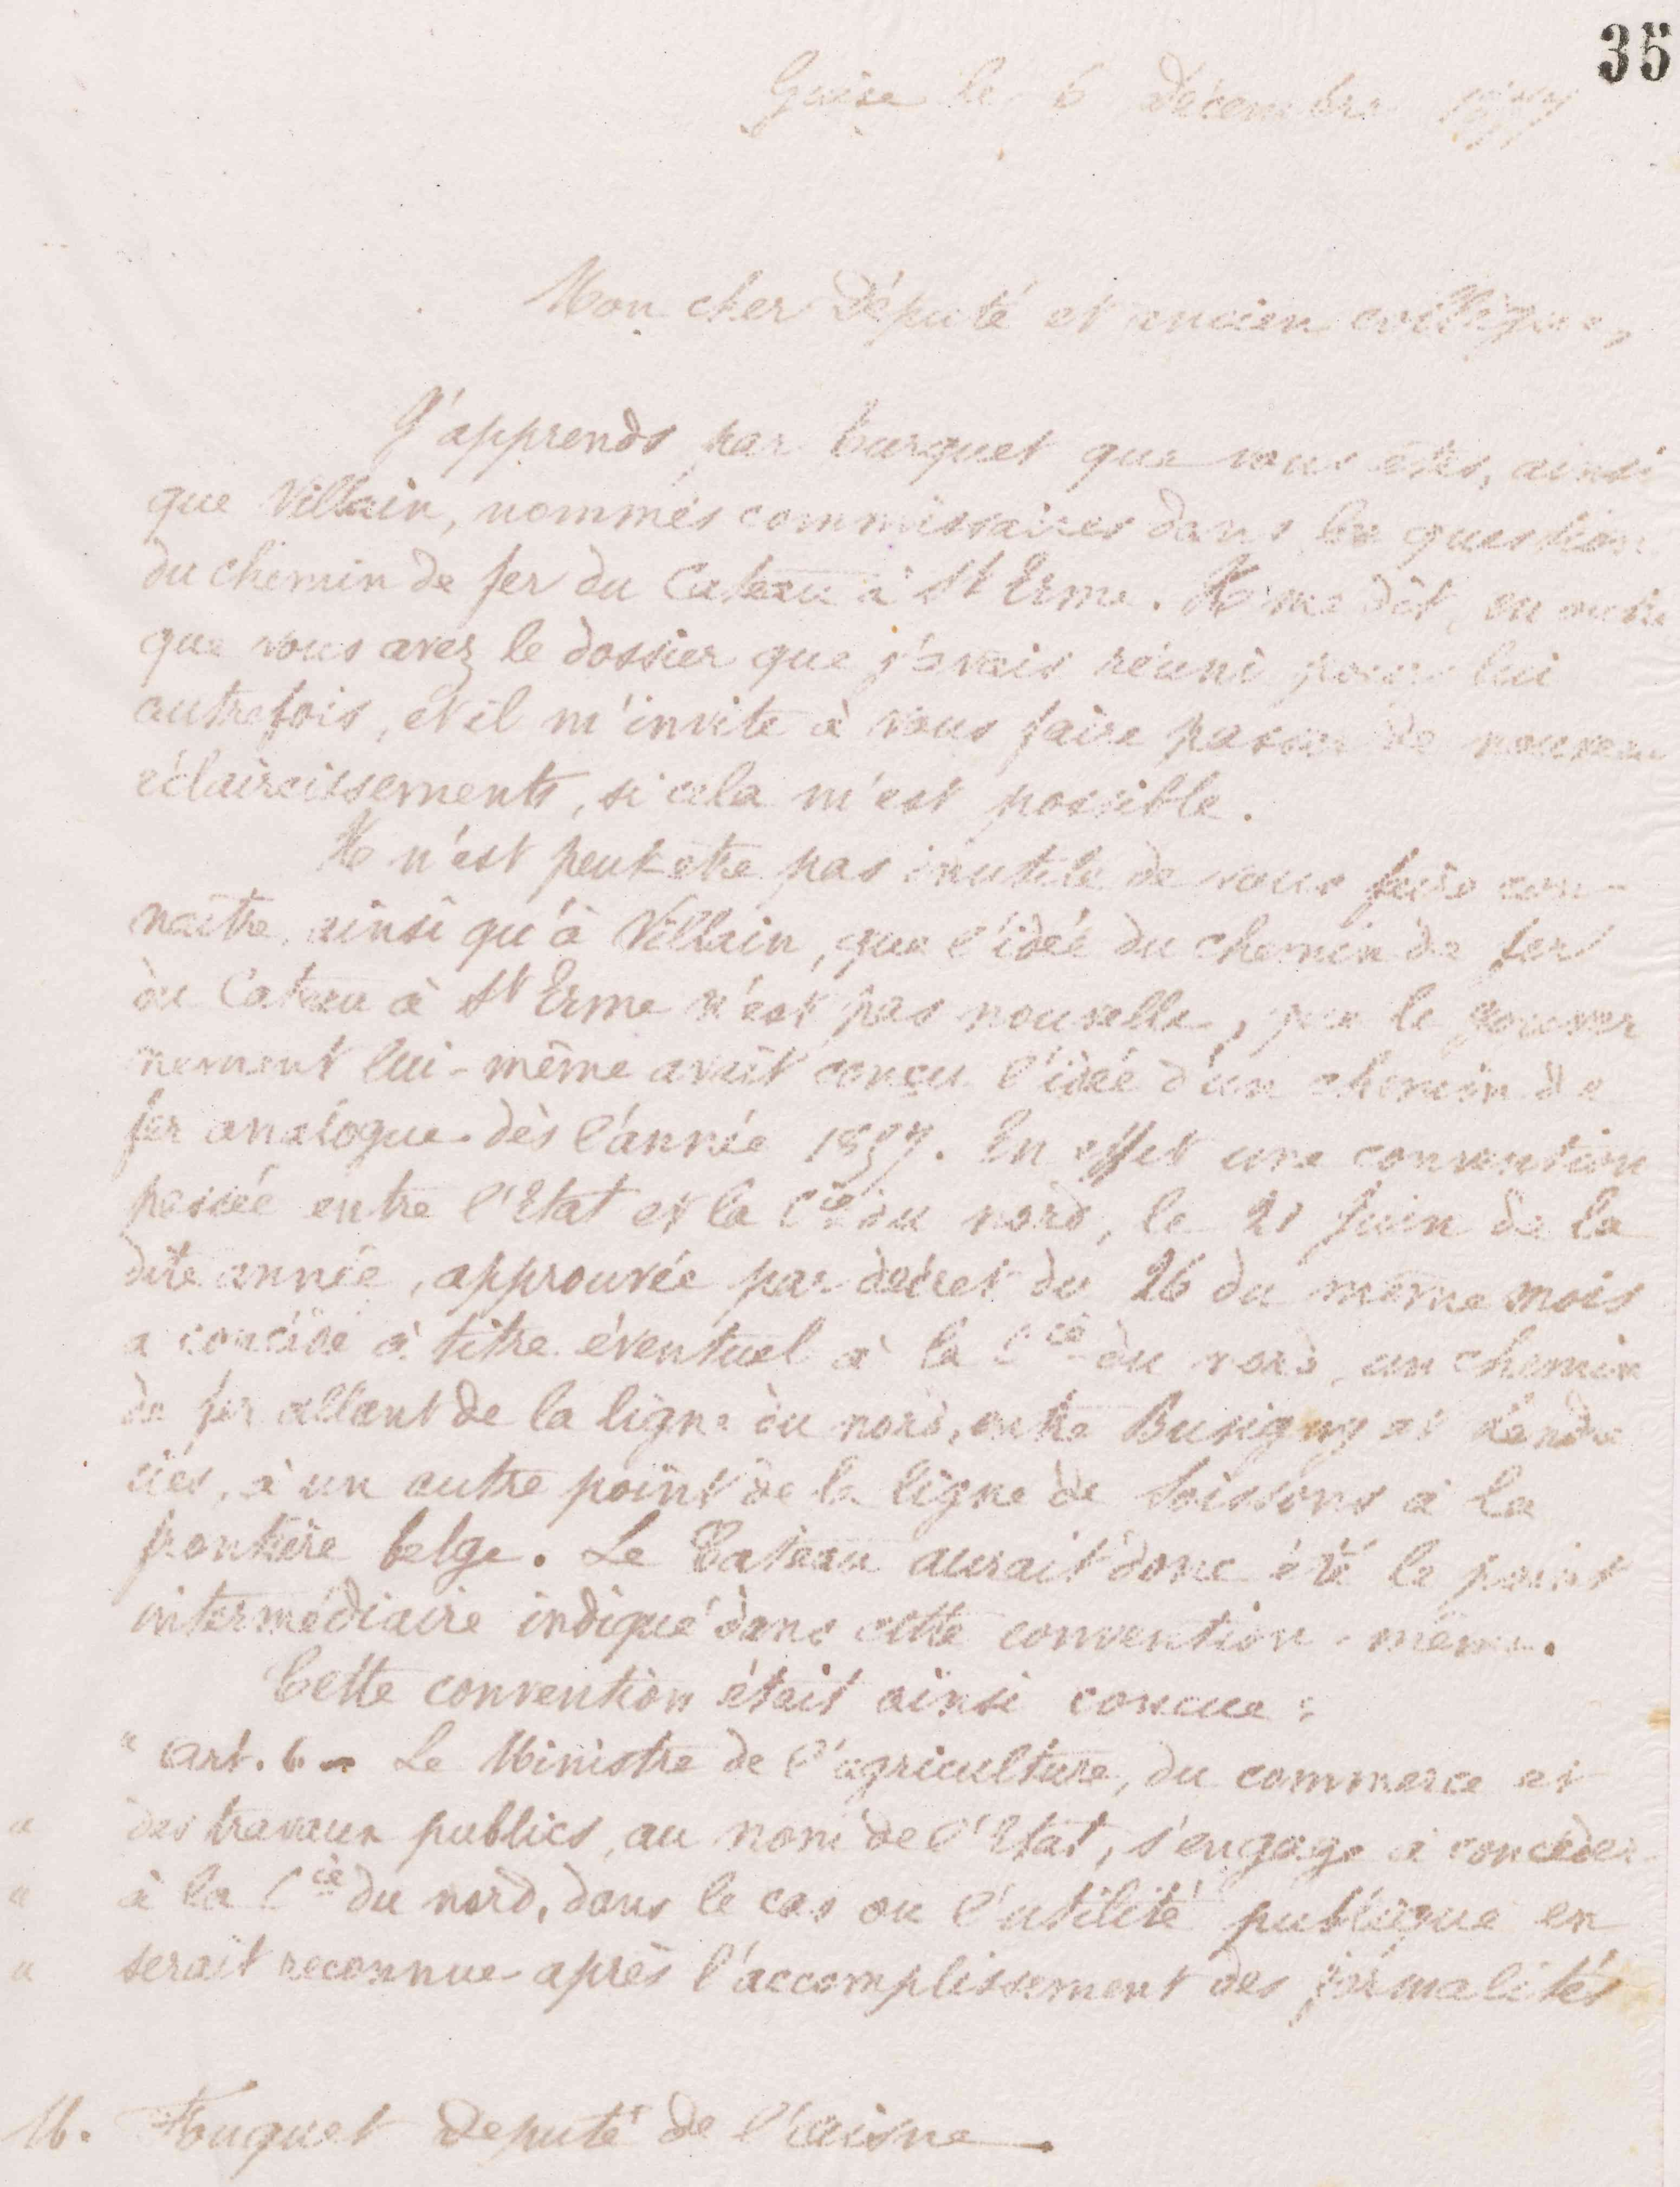 35
Guise le 6 Décembre
Mon cher Député et ancien collègue,
J'apprends par Turquet que vous êtes, ainsi
que Villain, nommés commissaires dans la question
du chemin de fer du Cateau à St Erme. Il me dit, en outre
que vous avez le dossier que j'avais réuni pour lui
autrefois, et il m'invite à vous faire passer de nouveau
éclaircissements, si cela m'est possible.
Il n'est peut-etre pas inutile de vous faire con-
naitre, ainsi qu'à Villain, que l'idée du chemin de fer
du Cateau à St Erme n'est pas nouvelle, que le gouver
nement lui-même avait conçu l'idée d'un chemin de
fer analogue dès l'année 1857. En effet une convention
passée entre l'Etat et la Cie du nord, le 21 Juin de la
dite année, approuvée par décret du 26 du même mois
a concédé à titre éventuel à la Cie du nord, un chemin
de fer allant de la ligne du nord, entre Busigny et Landre
cies, à un autre point de la ligne de Soissons à la
frontière belge. Le Cateau aurait donc été le point
intermédiaire indiqué dans cette convention même.
Cette convention était ainsi concue :
" art. 6 - Le Ministre de l'agriculture, du commerce et
" des travaux publics, au nom de l'Etat, s'engage à concéder
" à la Cie du nord, dans le cas ou l'utilité publique en
" serait reconnue après l'accomplissement des formalités
M. Fouquet député de l'aisne